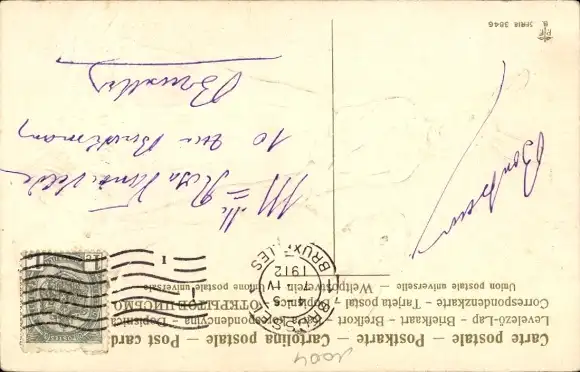 Carte postale – Postkarte – Cartolina postale – Post card
Levelező-Lap – Briefkaart – Brefkort – Korespondencyjna – Dopisnica
Correspondenzkarte – Tarjeta postal – ОТКРЫТОЕ ПИСЬМО
Union postale universelle – Weltpostverein – Unione postale universale
BRUXELLES
BRUSSEL
14-15
7 IV
1912
1
1
Mlle Rosa
10 rue
Bruxelles
SERIE 3846
1004